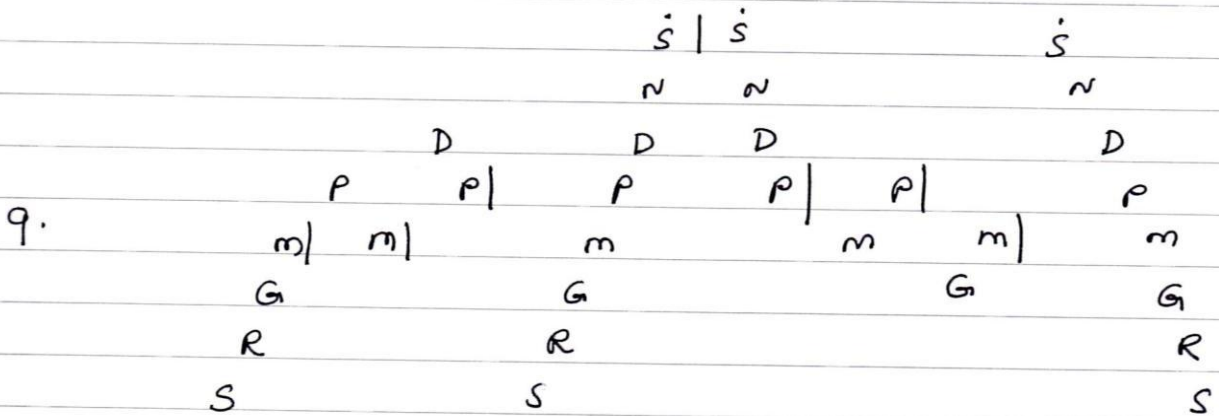 Ṡ | Ṡ Ṡ
N N N
D D D D
P P| P P| P| P
9. m| m| m m m| m
G G G G
R R R
S S S